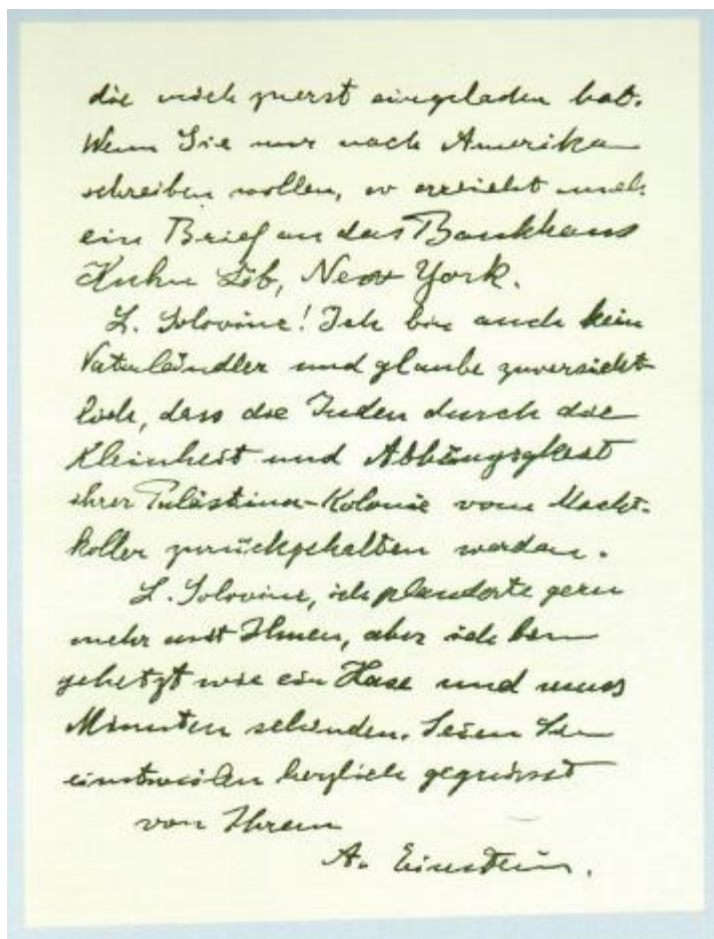 die mich zuerst eingeladen hat.
Wenn Sie mir nach Amerika
schreiben wollen, so erreicht mich
ein Brief an das Bankhaus
Kuhn Löb, New York.
L. Solovine! Ich bin auch kein
Vaterländler und glaube zuversicht-
lich, dass die Juden durch die
Kleinheit und Abhängigkeit
ihrer Palästina-Kolonie vom Macht-
koller zurückgehalten werden.
L. Solovine, ich plauderte gern
mehr mit Ihnen, aber ich bin
gehetzt wie ein Hase und muss
Minuten schinden. Seien Sie
einstweilen herzlich gegrüsst
von Ihrem
A. Einstein.